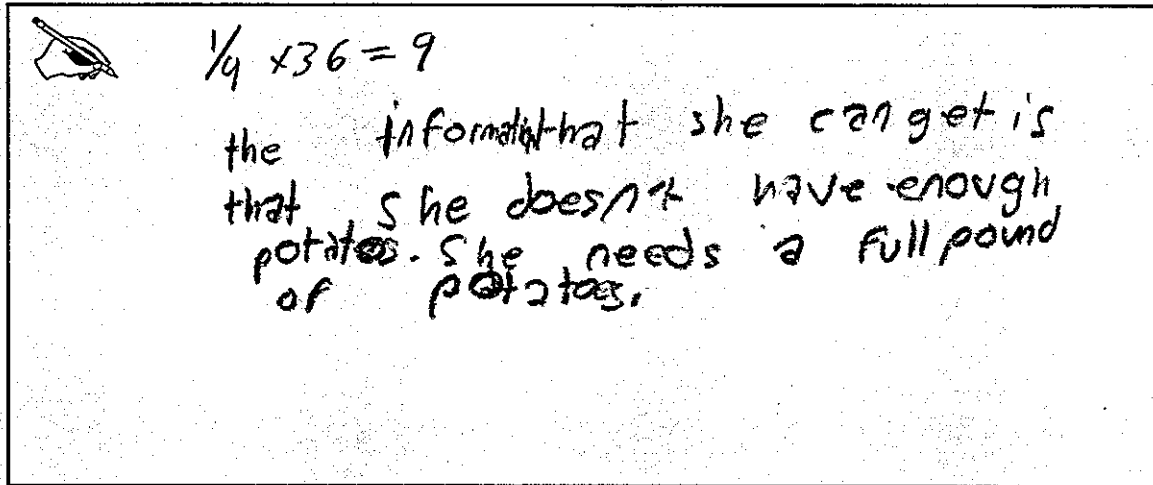 1/4 x36 = 9
the informatin that she can get is
that she doesn't have enough
potatos. She needs a full pound
of potatoes.